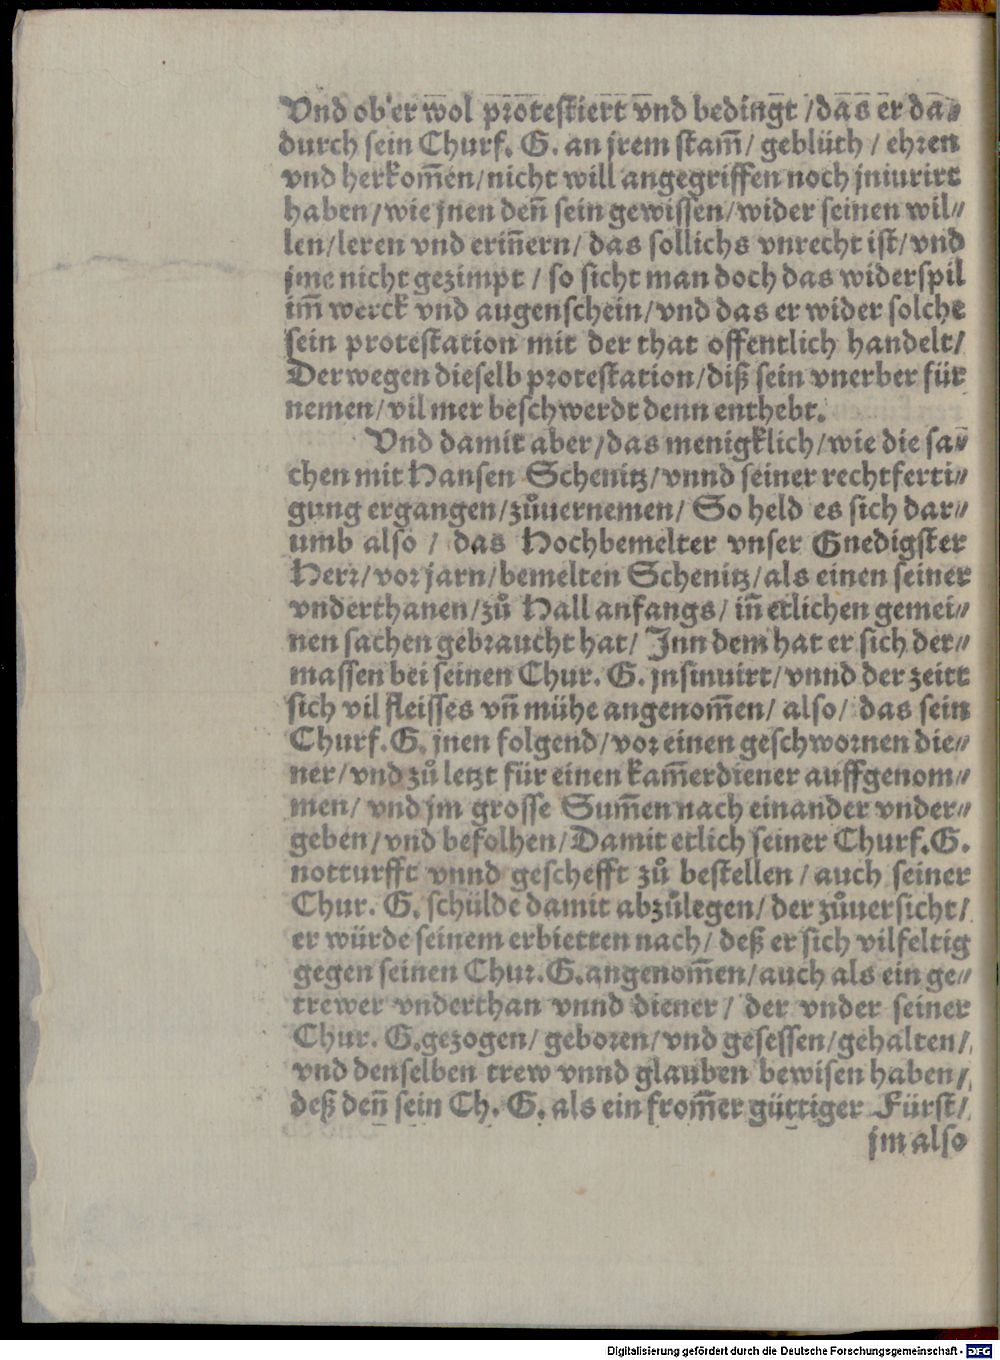 Vnd ob er wol protestiert vnd bedingt /das er da⸗
durch sein Churf. G. an jrem stam̃/ geblüth / ehren
vnd herkom̃en/nicht will angegriffen noch jniurirt
haben/wie jnen den̄ sein gewissen/wider seinen wil⸗
len/leren vnd erin̄ern/ das sollichs vnrecht ist/vnd
jme nicht gezimpt / so sicht man doch das widerspil
im̃ werck vnd augenschein/vnd das er wider solche
sein protestation mit der that offentlich handelt/
Derwegen dieselb protestation/diß sein vnerber für
nemen/vil mer beschwerdt denn enthebt.
Vnd damit aber/das menigklich/wie die sa⸗
chen mit Hansen Schenitz/vnnd seiner rechtferti⸗
gung ergangen/zůuernemen/ So held es sich dar⸗
umb also / das Hochbemelter vnser Gnedigster
Herr/vor jarn/bemelten Schenitz/als einen seiner
vnderthanen/zů Hall anfangs/ in̄ etlichen gemei⸗
nen sachen gebraucht hat/ Jnn dem hat er sich der⸗
massen bei seinen Chur. G. jnsinuirt/vnnd der zeitt
sich vil fleisses vn̄ mühe angenom̃en/ also/ das sein
Churf. G. jnen folgend/vor einen geschwornen die⸗
ner/vnd zů letzt für einen kam̃erdiener auffgenom⸗
men/ vnd jm grosse Sum̃en nach einander vnder⸗
geben/vnd befolhen/Damit etlich seiner Churf.G.
notturfft vnnd geschefft zů bestellen / auch seiner
Chur. G. schülde damit abzůlegen/ der zůuersicht/
er würde seinem erbietten nach/ deß er sich vilfeltig
gegen seinen Chur.G.angenom̃en/auch als ein ge⸗
trewer vnderthan vnnd diener / der vnder seiner
Chur. G.gezogen/ geboren/vnd gesessen/gehalten/
vnd denselben trew vnnd glauben bewisen haben/
deß den̄ sein Ch. G. als ein from̃er güttiger Fürst/
jm also
Digitalisierung gefördert durch die Deutsche Forschungsgemeinschaft - DFG